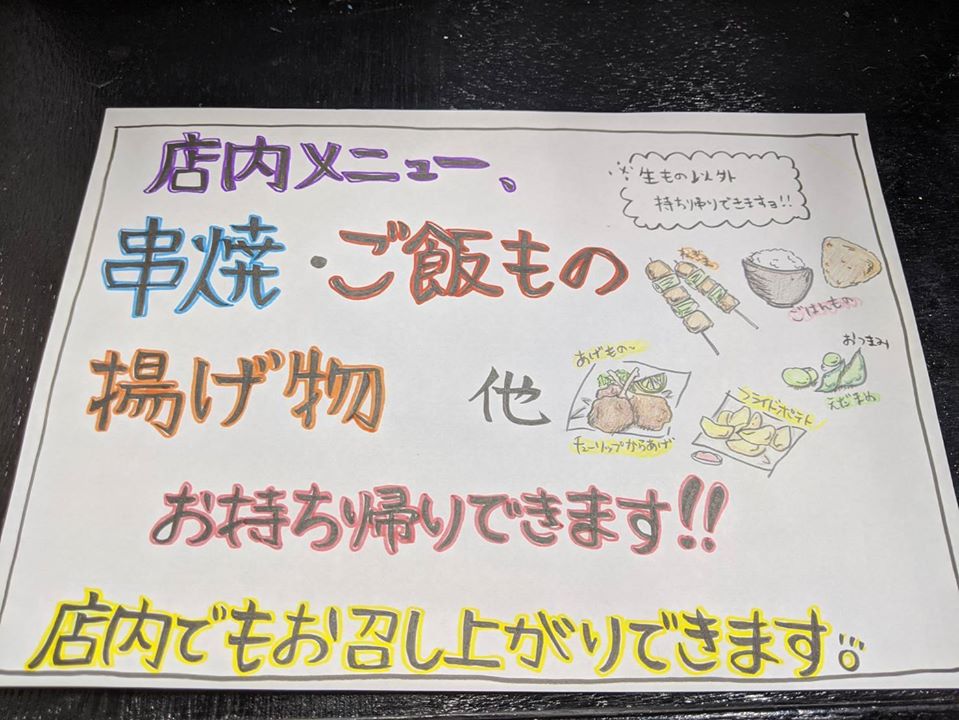 店内メニュー、
※生もの以外
持ち帰りできますヨ!!
串焼・ご飯もの
ごはんもの
揚げ物 他
あげもの〜
チューリップからあげ
フライドポテト
おつまみ
えだまめ
お持ち帰りできます!!
店内でもお召し上がりできます。